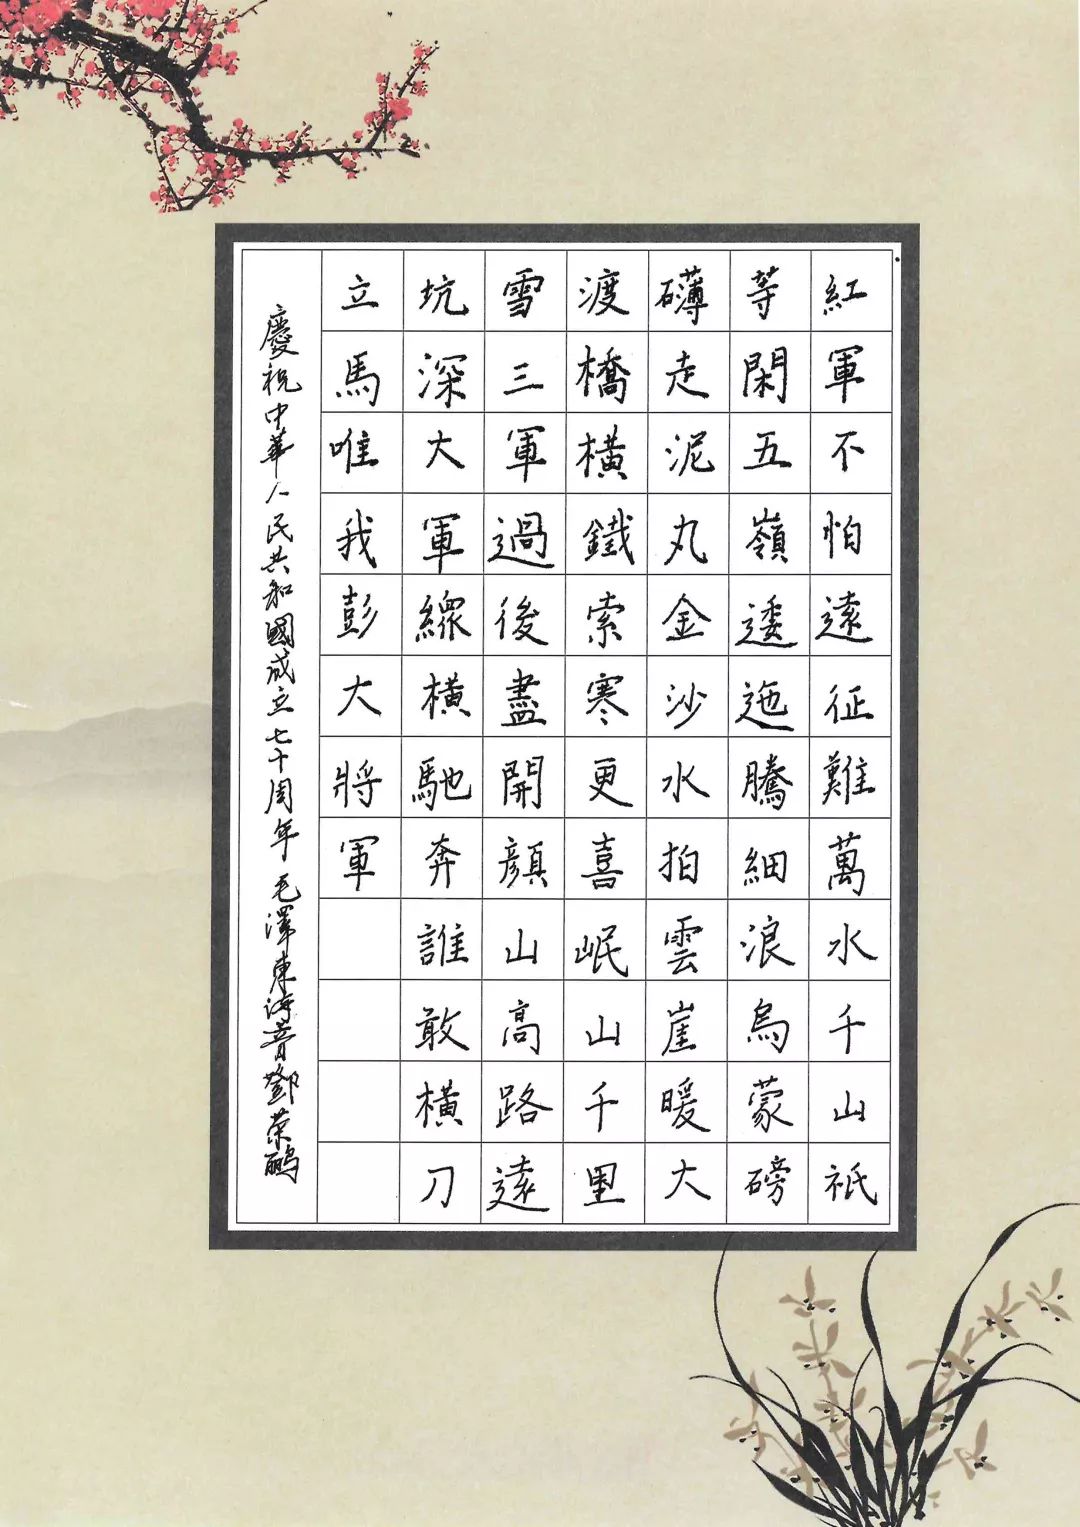 紅軍不怕遠征難萬水千山祇
等閑五嶺逶迤騰細浪烏蒙磅
礴走泥丸金沙水拍雲崖暖大
渡橋橫鐵索寒更喜岷山千里
雪三軍過後盡開顏山高路遠
坑深大軍縱橫馳奔誰敢橫刀
立馬唯我彭大將軍
慶祝中華人民共和國成立七十周年 毛澤東詩首鄧榮